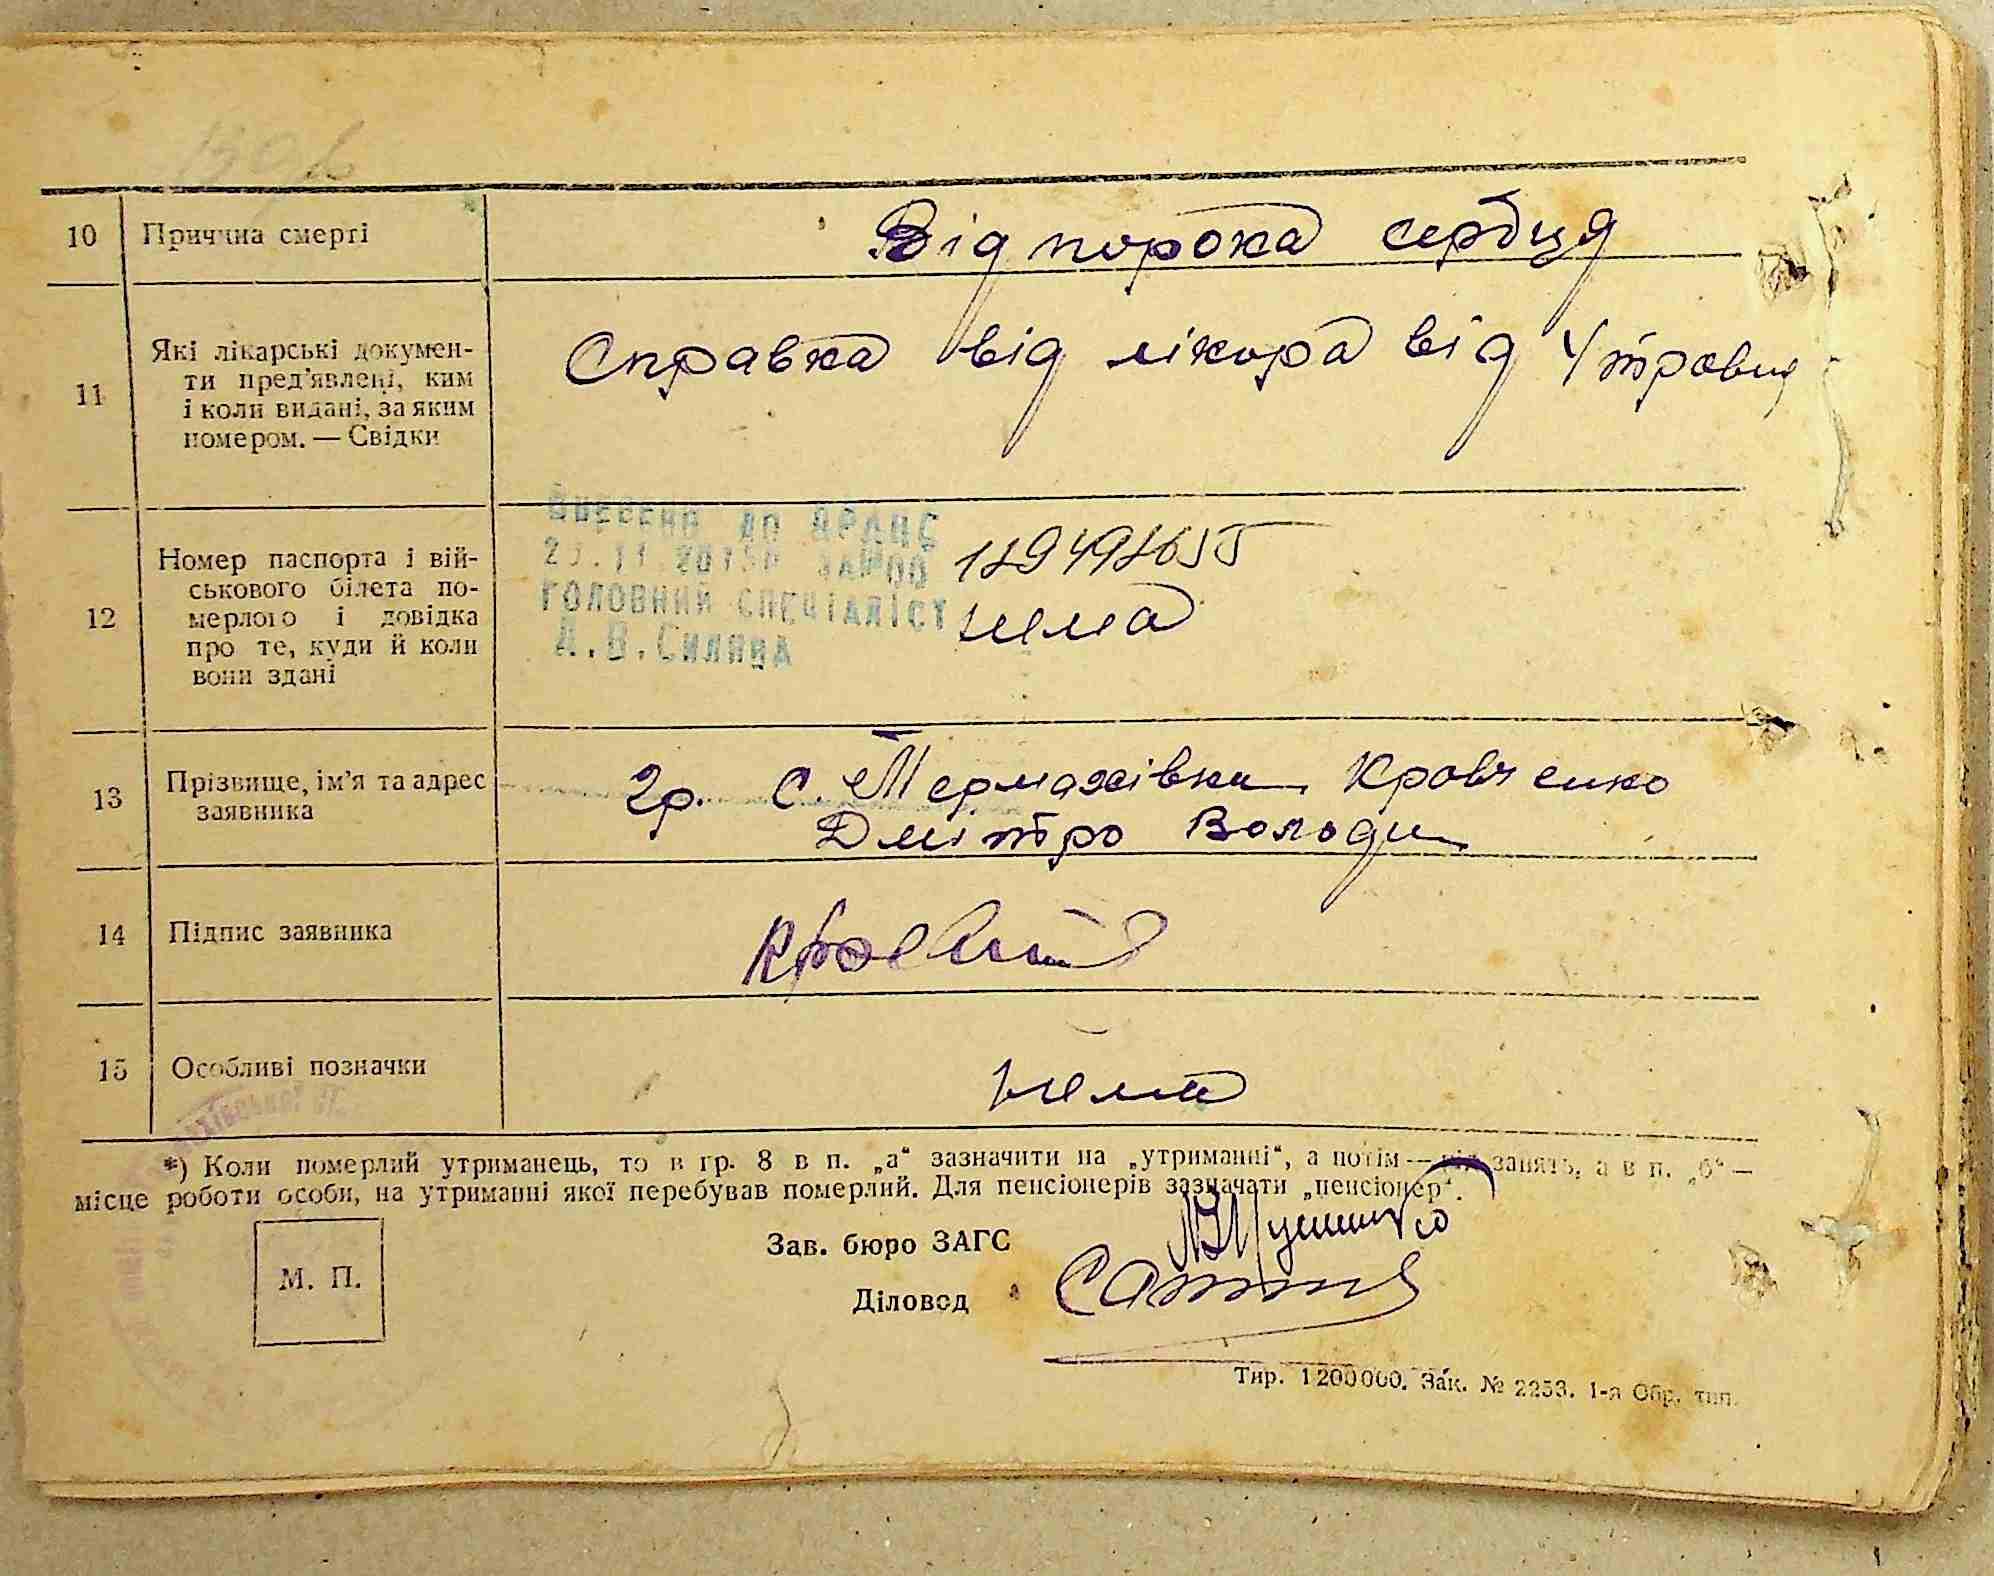 10 Причина смерті Від порока сердця
11 Які лікарські документи пред'явлені, ким і коли видані, за яким номером. — Свідки Справка від лікора від 4 травня
Внесено до ДРАЦС
ГОЛОВНИЙ СПЕЦІАЛІСТ
12 Номер паспорта і військового білета померлого і довідка про те, куди й коли вони здані
нема
13 Прізвище, ім'я та адрес заявника гр. с. Термахівки Кровченко
Дмітро Володи
14 Підпис заявника
15 Особливі позначки нема
*) Коли померлий утриманець, то в гр. 8 в п. „а“ зазначити на „утриманні“, а потім — рід занять, а в п. „б“ —
місце роботи особи, на утриманні якої перебував померлий. Для пенсіонерів зазначати „пенсіонер“.
Зав. бюро ЗАГС
М. П.
Діловод
Тир. 1200000. Зак. № 2253. 1-я Обр. тип.